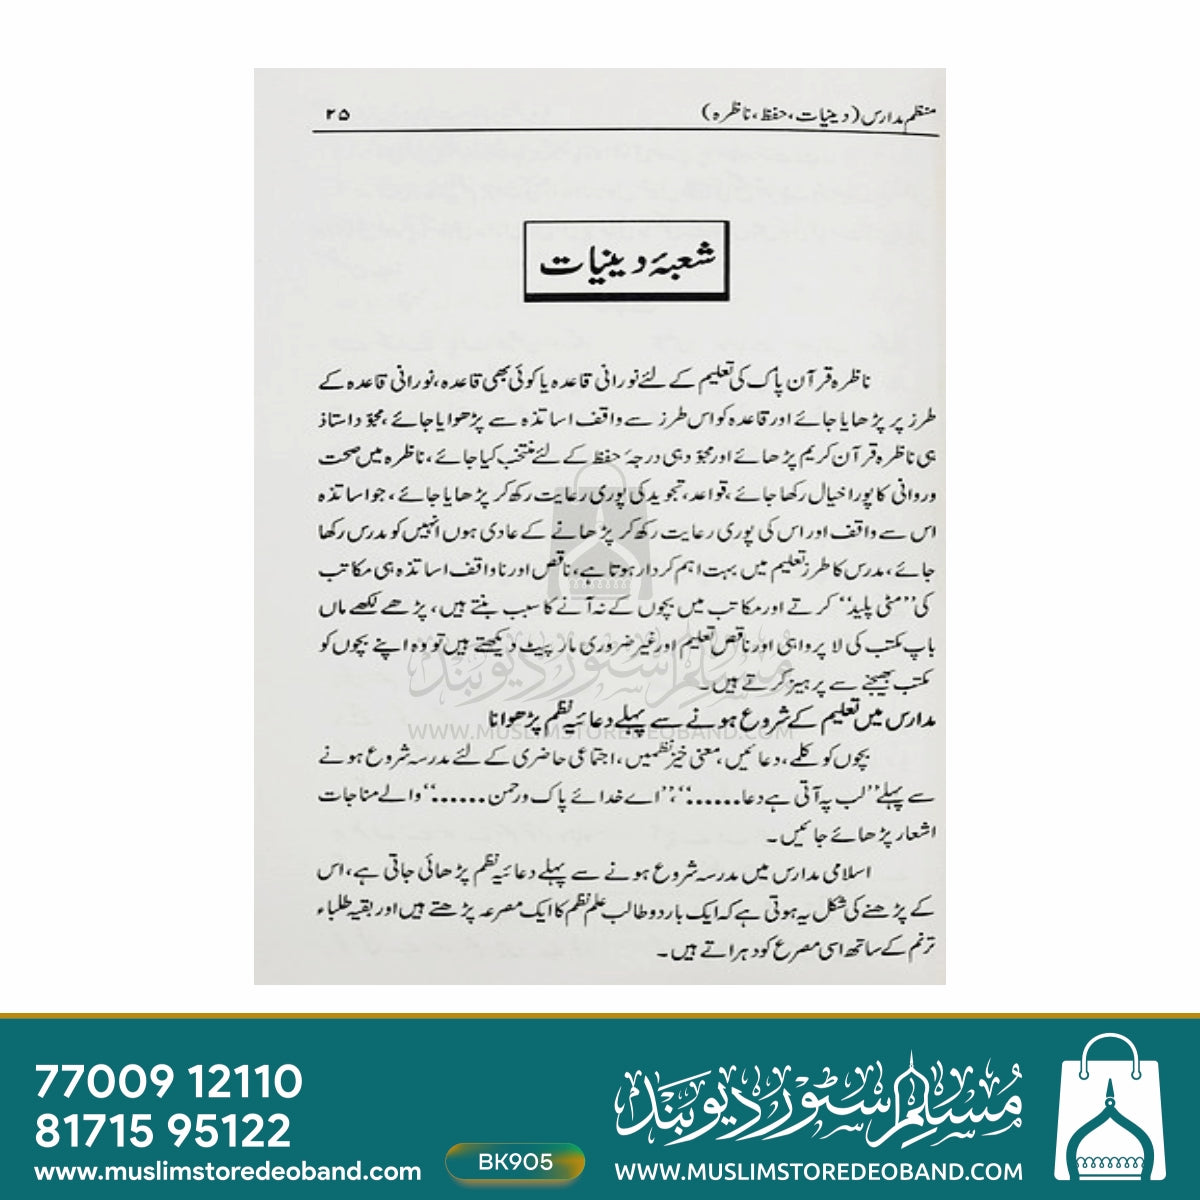 منظم مدارس (دینیات، حفظ، ناظرہ)
۲۵
شعبۂ دینیات
ناظرہ قرآن پاک کی تعلیم کے لئے نورانی قاعدہ یا کوئی بھی قاعدہ، نورانی قاعدہ کے
طرز پر پڑھایا جائے اور قاعدہ کو اس طرز سے واقف اساتذہ سے پڑھوایا جائے، مجوّد استاذ
ہی ناظرہ قرآن کریم پڑھائے اور مجوّد ہی درجۂ حفظ کے لئے منتخب کیا جائے، ناظرہ میں صحت
وروانی کا پورا خیال رکھا جائے، قواعد، تجوید کی پوری رعایت رکھ کر پڑھایا جائے، جو اساتذہ
اس سے واقف اور اس کی پوری رعایت رکھ کر پڑھانے کے عادی ہوں انہیں کو مدرس رکھا
جائے، مدرس کا طرز تعلیم میں بہت اہم کردار ہوتا ہے، ناقص اور ناواقف اساتذہ ہی مکاتب
کی ”مٹی پلید“ کرتے اور مکاتب میں بچوں کے نہ آنے کا سبب بنتے ہیں، پڑھے لکھے ماں
باپ مکتب کی لا پرواہی اور ناقص تعلیم اور غیر ضروری مار پیٹ دیکھتے ہیں تو وہ اپنے بچوں کو
مکتب بھیجنے سے پرہیز کرتے ہیں۔
مدارس میں تعلیم کے شروع ہونے سے پہلے دعائیہ نظم پڑھوانا
بچوں کو کلمے، دعائیں، معنی خیز نظمیں، اجتماعی حاضری کے لئے مدرسہ شروع ہونے
سے پہلے ”لب پہ آتی ہے دعا......“، ”اے خدائے پاک و رحمن......“ والے مناجات
اشعار پڑھائے جائیں۔
اسلامی مدارس میں مدرسہ شروع ہونے سے پہلے دعائیہ نظم پڑھائی جاتی ہے، اس
کے پڑھنے کی شکل یہ ہوتی ہے کہ ایک بار دو طالب علم نظم کا ایک مصرعہ پڑھتے ہیں اور بقیہ طلباء
ترنم کے ساتھ اسی مصرع کو دہراتے ہیں۔
مسلم سٹور دیوبند
WWW.MUSLIMSTOREDEOBAND.COM
77009 12110
81715 95122
www.muslimstoredeoband.com
BK905
مسلم سٹور دیوبند
WWW.MUSLIMSTOREDEOBAND.COM